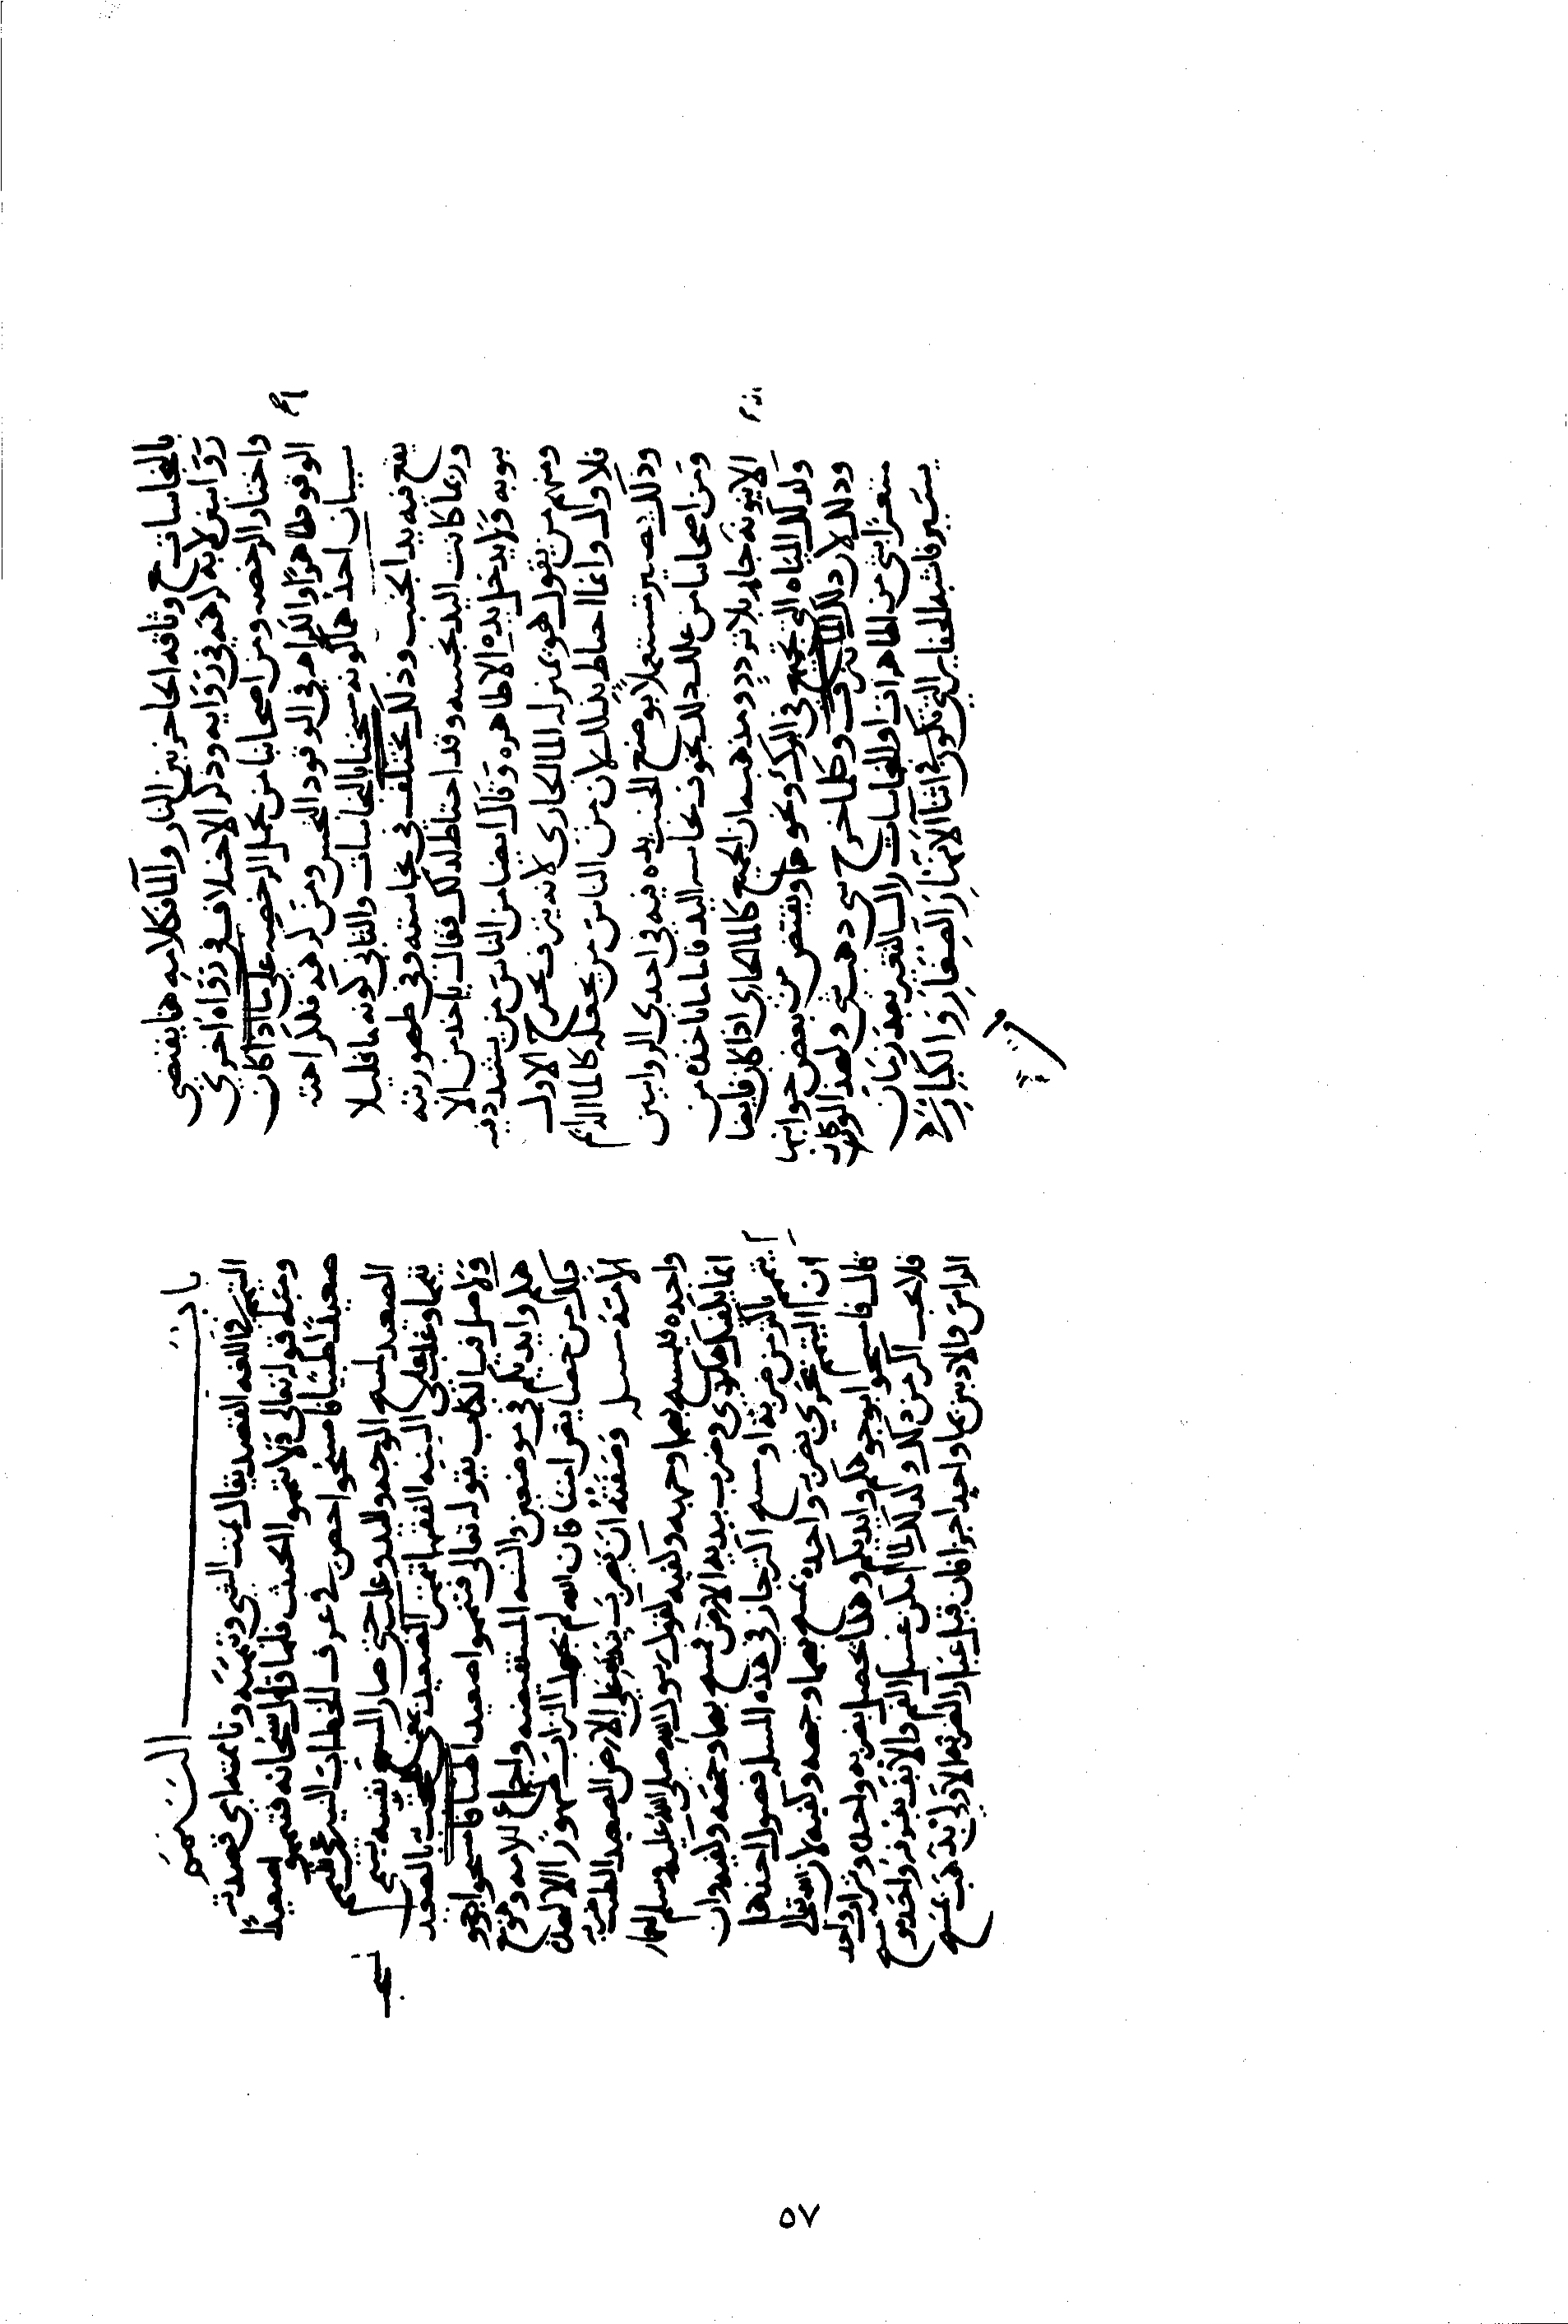 بالنجاسات ح وثاقه الحاجز بين النار والما وكلامه هنا يقتضي
روايتين لانه كرهه في روايه وذكر الاختلاف في روايه اخري
واختار الرخصه ومن اصحابنا من يحمل الرخصه علي ما اذا كان
الوقود طاهرا والكراهه في الوقود النجس ومن كرهه فلكراهته
سببان احدهما كونه سخن بالنجاسات والثاني كونه ما قليلا
يقع فيه يد الجنب وذلك مختلف في نجاسته وفي طهوريته
وربما كانت اليد نجسه وقد احتاط لذلك فقال ياخذ من الا
نبوبه ولا يدخل يده الا طاهره وقال ايضا من الناس من يشدد فيه
ومنهم من يقول هو بمنزله الما الجاري لانه ينزف يخرج الاول
فلاول وانما احتاط بذلك لان من الناس من يجعله كالما الدايم
وذلك يصير مستعملا بوضع الجنب يده فيه في احدي الروايتين
ومن اصحابنا من علل ذلك بخوف نجاسه اليد فاما ما ياخذه من
الانبوبه جار بلا تردد ومذهبه ان الجميع كالما الجاري اذا كان فايضا
وكذلك المياه التي تجتمع في البرك ونحوها ويفيض من بعض جوانبها
وذلك لان ذلك الما ينزف وكلما خرج شي ذهب شي ولهذا لو كان
متغيرا بشي من الطاهرات او النجاسات زال التغير بعد زمان
يسير فاشبه الحفاير التي تكون في اثنا الانهار الصغار والكبار
باب التيمم
التيمم في اللغه القصد يقال يممت الشي وتيممته وتاممته اي قصدته
ومنه قوله تعالي ولا تيمموا الخبيث فلما قال سبحانه فتيمموا
صعيدا طيبا فامسحوا خص في عرف
الصعيد لمسح الوجه واليد وغلب حتي صار المسح نفسه تيمما
تيمما وغلب علي السنه الفقها تيممت الصعيد بمعني تمسحت بالصعيد
ولاصل فيه الكتاب بقوله تعالي فتيمموا صعيدا طيبا فامسحوا بوجو
هكم وايديكم في موضعين والسنه المستفيضه واجماع الامه وهو
من خصايص امتنا فان الله لم يجعل التراب طهورا الا لهذه
الامه مسله وصفته ان يضرب بيديه علي الارض الصعيد الطيب ضربه
واحده فيمسح بهما وجهه وكفيه لقول رسول الله صلي الله عليه وسلم لعمار
انما يكفيك هكذي وضرب بيديه الارض فمسح بهما وجهه وكفيه وان
تيمم باكثر من ضربه او مسح اكثر جاز في هذه المسله فصول احدها
ان التيمم يجزي بضربه واحده يمسح بهما وجهه وكفيه لان الله تعالي
قال فامسحوا بوجوهكم وايديكم وهذا يحصل بضربه واحده وتراب واحد
فلا يجب اكثر من ذلك ولذلك لما امكن غسل الفم والانف بغرفه واحده ومسح
الراس والاذنين بما واحد اجزا فان قيل غبار الضربه الاولي يذهب بمسح
٥٧